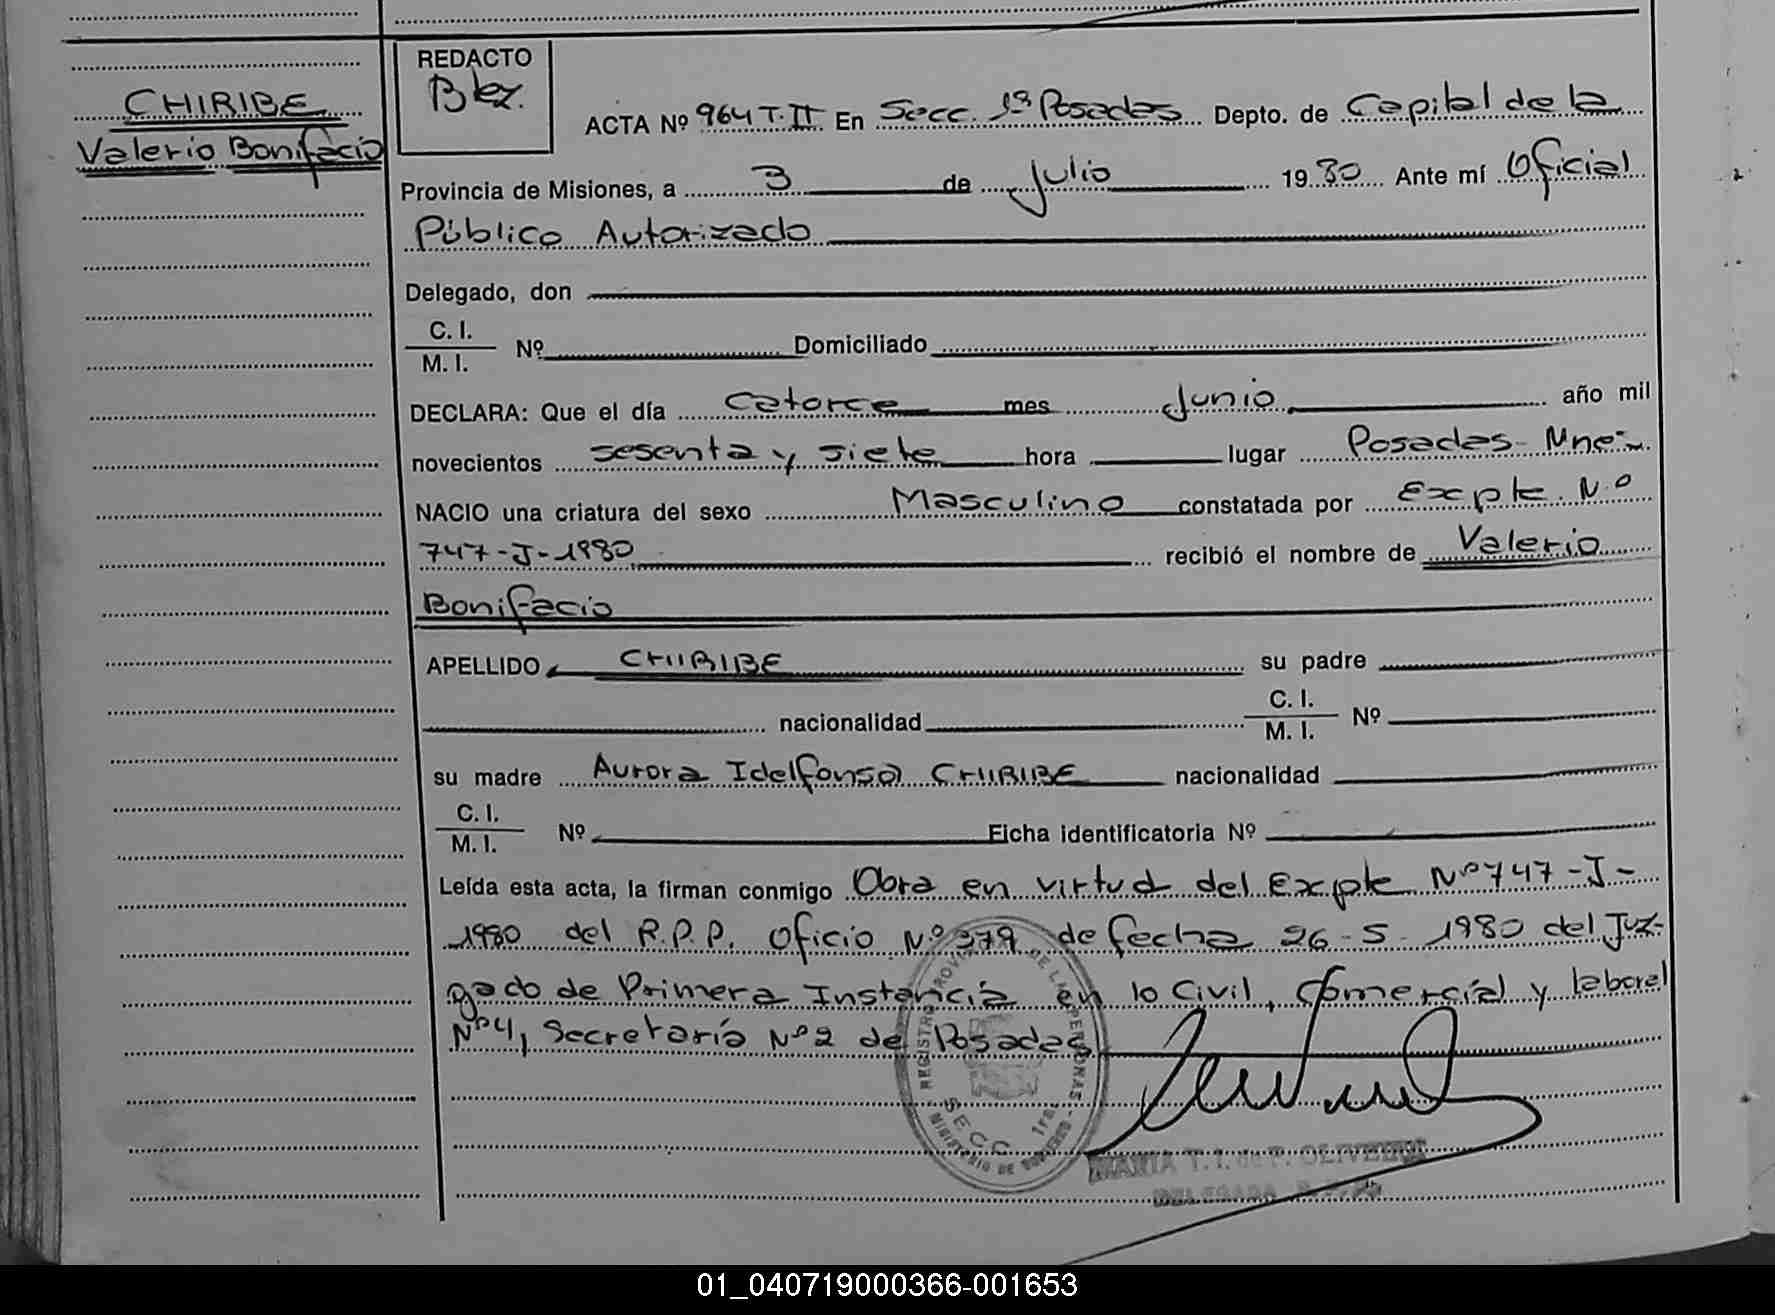 CHIRIBE
Valerio Bonifacio
REDACTO
Blez.
ACTA Nº 964 T. II En Secc. 1ª Posadas Depto. de Capital de la
Provincia de Misiones, a 3 de Julio 1980 Ante mí Oficial
Público Autorizado
Delegado, don
C. I.
M. I.
Nº Domiciliado
DECLARA: Que el día catorce mes Junio año mil
novecientos sesenta y siete hora lugar Posadas - Mnes.
NACIO una criatura del sexo Masculino constatada por Expte. Nº
747-J-1980 recibió el nombre de Valerio
Bonifacio
APELLIDO CHIRIBE su padre
nacionalidad C. I.
M. I.
Nº
su madre Aurora Idelfonsa CHIRIBE nacionalidad
C. I.
M. I.
Nº Ficha identificatoria Nº
Leída esta acta, la firman conmigo Obra en virtud del Expte Nº 747-J-
1980 del R.P.P. Oficio Nº 379 de fecha 26-5-1980 del Juz-
gado de Primera Instancia en lo Civil, Comercial y laboral
Nº 4, Secretaría Nº 2 de Posadas
REGISTRO PROVINCIAL DE LAS PERSONAS
SECC. 1ra.
MINISTERIO DE GOBIERNO
MARIA T. I. de P. OLIVEIRA
DELEGADA
01_040719000366-001653